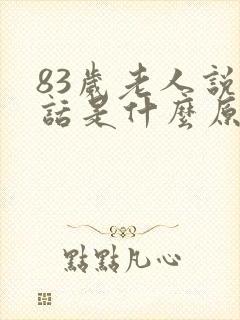 83歲老人説
話是什麼原
點點凡心